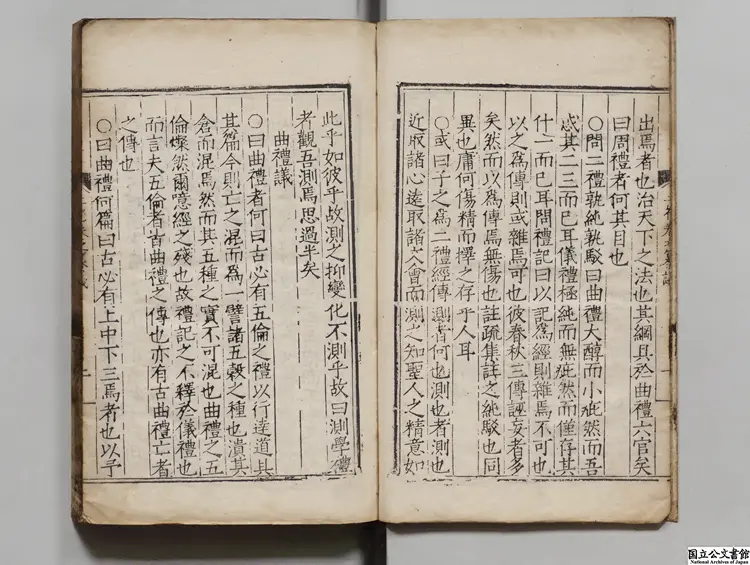 出焉者也治天下之法也其綱具於曲禮六官矣
曰周禮者何其目也
○問二禮孰純孰駁曰曲禮大醇而小疵然而吾
惑其二三而已耳儀禮極純而無疵然而僅存其
什一而已耳問禮記曰以記爲經則雜焉不可也
以之爲傳則或雜焉可也彼春秋三傳誣妄者多
矣然而以爲傳焉無傷也註疏集註之純駁也同
異也庸何傷精而擇之存乎人耳
○或曰子之爲二禮經傳測者何也測也者測也
近取諸心遠取諸文會而測之知聖人之精意如
此乎如彼乎故測之抑變化不測乎故曰測學禮
者觀吾測焉思過半矣
曲禮議
○曰曲禮者何曰古必有五倫之禮以行達道其
其篇今則亡之混而爲一譬諸五穀之種也潰其
倉而混焉然而其五種之實不可混也曲禮之五
倫燦然爾意經之殘也故禮記之不釋於儀禮也
而言夫五倫者古曲禮之傳也亦有古曲禮亡者
之傳也
○曰曲禮何篇曰古必有上中下三焉者也以予
国立公文書館
National Archives of Japan